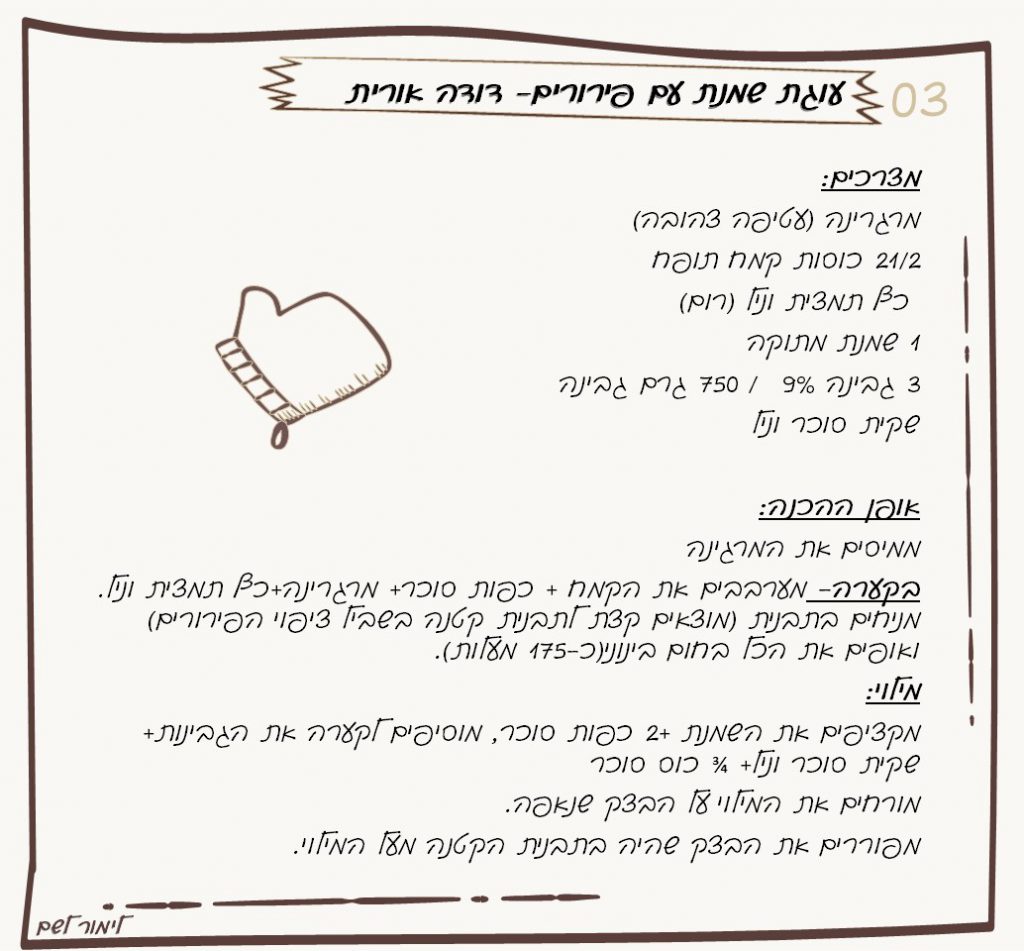 03
עוגת שמנת עם פירורים- דודה אורית
מצרכים:
מרגרינה (עטיפה צהובה)
21/2 כוסות קמח תופח
כף תמצית וניל (רום)
1 שמנת מתוקה
3 גבינה 9% / 750 גרם גבינה
שקית סוכר וניל
אופן ההכנה:
ממיסים את המרגינה
בקערה- מערבבים את הקמח + כפות סוכר+ מרגרינה+כף תמצית וניל.
מניחים בתבנית (מוצאים קצת לתבנית קטנה בשביל ציפוי הפירורים)
ואופים את הכל בחום בינוני(כ-175 מעלות).
מילוי:
מקציפים את השמנת +2 כפות סוכר, מוסיפים לקערה את הגבינות+
שקית סוכר וניל+ ¾ כוס סוכר
מורחים את המילוי על הבצק שנאפה.
מפוררים את הבצק שהיה בתבנית הקטנה מעל המילוי.
לימור לשם